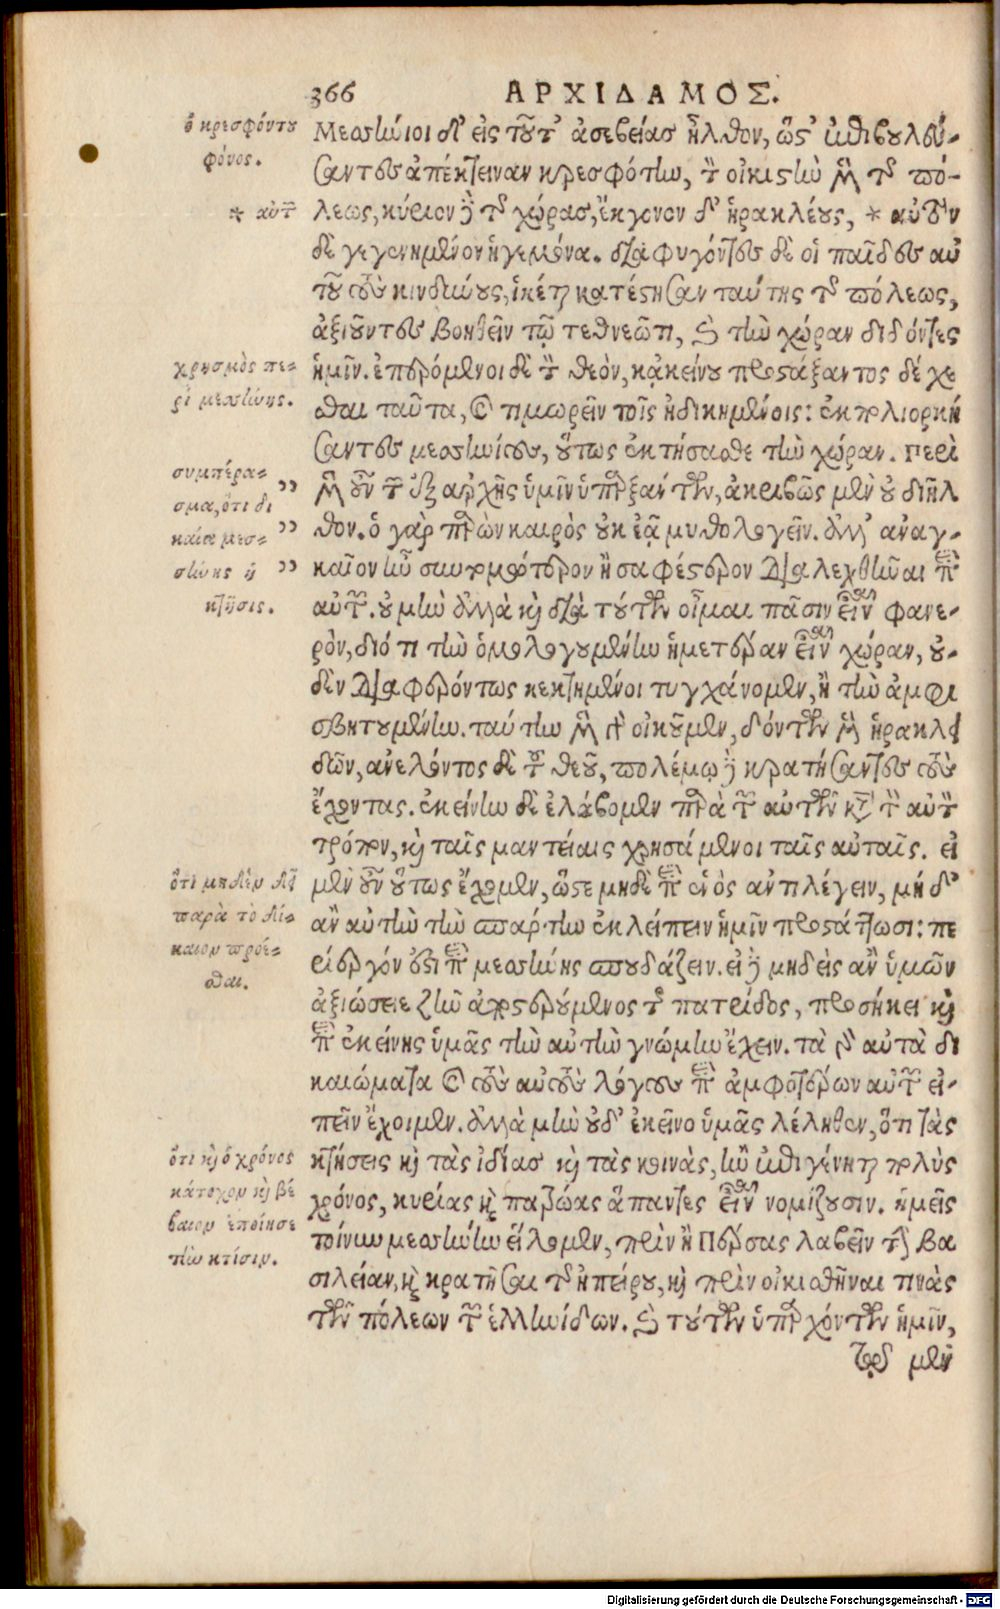 366 ΑΡΧΙΔΑΜΟΣ.
ὁ κρεσφόντου
φόνος.
Μεσσήνιοι δ' εἰς τοῦτ' ἀσεβείας ἦλθον, ὥστ' ἐπιβουλεύ-
σαντες ἀπέκτειναν κρεσφόντην, τὸν οἰκιστὴν μὲν τῆς πό-
* αὐτῶν
λεως, κύριον δὲ τῆς χώρας, ἔκγονον δ' ἡρακλέους, * αὐτὸν
δὲ γεγενημένον ἡγεμόνα. διαφυγόντες δὲ οἱ παῖδες αὐ
τοῦ τοὺς κινδύνους, ἱκέται κατέστησαν ταύτης τῆς πόλεως,
ἀξιοῦντες βοηθεῖν τῷ τεθνεῶτι, καὶ τὴν χώραν διδόντες
χρησμὸς πε-
ρὶ μεσσήνης.
ἡμῖν. ἐπερόμενοι δὲ τὸν θεὸν, κἀκείνου προστάξαντος δέχε
σθαι ταῦτα, καὶ τιμωρεῖν τοῖς ἠδικημένοις: ἐκπολιορκή
σαντες μεσσηνίους, οὕτως ἐκτήσασθε τὴν χώραν. Περὶ
συμπέρα-
σμα, ὅτι δι
καία μεσ-
σήνης ἡ
κτῆσις.
μὲν οὖν τῶν ἐξ ἀρχῆς ὑμῖν ὑπαρξάντων, ἀκριβῶς μὲν οὐ διῆλ
θον. ὁ γὰρ παρὼν καιρὸς οὐκ ἐᾷ μυθολογεῖν. ἀλλ' ἀναγ-
καῖον ἦν συντομώτερον ἢ σαφέστερον διαλεχθῆναι περὶ
αὐτῶν. οὐ μὴν ἀλλὰ καὶ διὰ τούτων οἶμαι πᾶσιν εἶναι φανε-
ρὸν, διότι τὴν ὁμολογουμένην ἡμετέραν εἶναι χώραν, οὐ-
δὲν διαφερόντως κεκτημένοι τυγχάνομεν, ἢ τὴν ἀμφι
σβητουμένην. ταύτην μὲν γὰρ οἰκοῦμεν, δόντων μὲν ἡρακλει
δῶν, ἀνελόντος δὲ τοῦ θεοῦ, πολέμῳ δὲ κρατήσαντες τοὺς
ἔχοντας. ἐκείνην δὲ ἐλάβομεν παρὰ τῶν αὐτῶν καὶ τὸν αὐτὸν
τρόπον, καὶ ταῖς μαντείαις χρησάμενοι ταῖς αὐταῖς. εἰ
ὅτι μηδὲν δεῖ
παρὰ τὸ δί-
καιον προέ-
σθαι.
μὲν οὖν οὕτως ἔχομεν, ὥστε μηδὲ περὶ ἑνὸς ἀντιλέγειν, μήδ'
ἂν αὐτὴν τὴν σπάρτην ἐκλείπειν ἡμῖν προστάττωσι: πε
ρίεργόν ἐστι περὶ μεσσήνης σπουδάζειν. εἰ δὲ μηδεὶς ἂν ὑμῶν
ἀξιώσειε ζῆν ἀποστερούμενος τῆς πατρίδος, προσήκει καὶ
περὶ ἐκείνης ὑμᾶς τὴν αὐτὴν γνώμην ἔχειν. τὰ γὰρ αὐτὰ δι
καιώματα καὶ τοὺς αὐτοὺς λόγους περὶ ἀμφοτέρων αὐτῶν εἰ-
πεῖν ἔχοιμεν. ἀλλὰ μὴν οὐδ' ἐκεῖνο ὑμᾶς λέληθεν, ὅτι τὰς
ὅτι καὶ ὁ χρόνος
κάτοχον καὶ βέ
βαιον ἐποίησε
τὴν κτίσιν.
κτήσεις καὶ τὰς ἰδίας καὶ τὰς κοινὰς, ἢν ἐπιγένηται πολὺς
χρόνος, κυρίας καὶ πατρώας ἅπαντες εἶναι νομίζουσιν. ἡμεῖς
τοίνυν μεσσήνην εἵλομεν, πρὶν ἢ Πέρσας λαβεῖν τὴν βα
σιλείαν, καὶ κρατῆσαι τῆς ἠπείρου, καὶ πρὶν οἰκισθῆναι τινὰς
τῶν πόλεων τῶν ἑλληνίδων. καὶ τούτων ὑπαρχόντων ἡμῖν,
τῷ μὲν
Digitalisierung gefördert durch die Deutsche Forschungsgemeinschaft - DFG